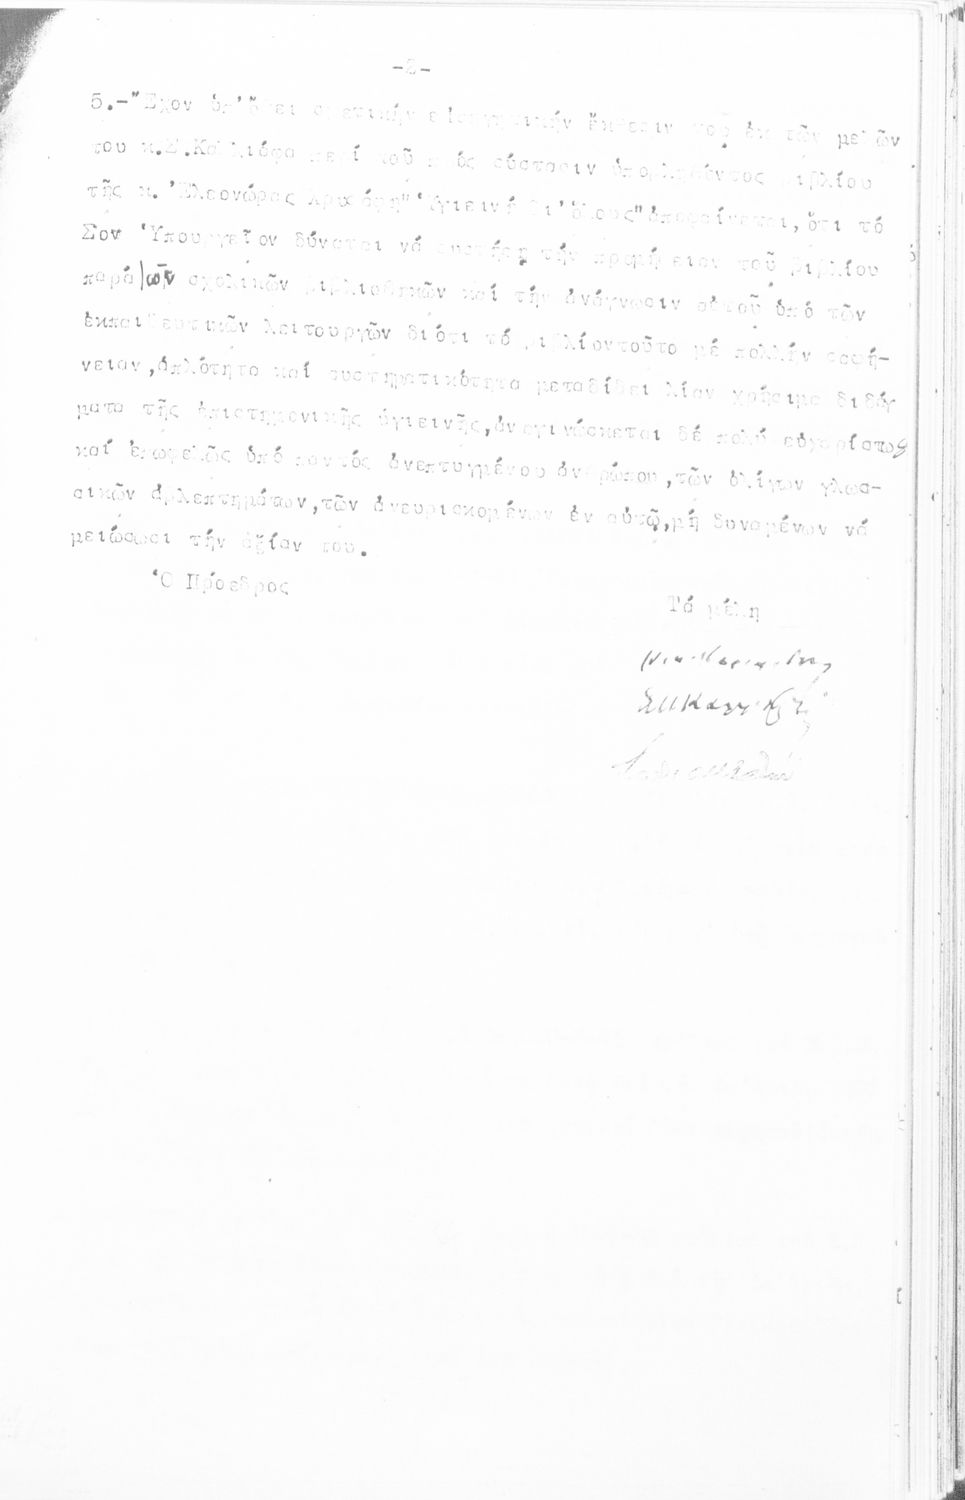 5.-"Έχον ὑπ'ὄψει σχετικήν εἰσηγητικήν ἔκθεσιν τοῦ ἐκ τῶν μελῶν
του κ.Σ.Καλλιάφα περί τοῦ πρός σύστασιν ὑποβληθέντος βιβλίου
τῆς κ. Ἐλεονώρας "Ὑγιεινή δι'ὅλους" ἀποφαίνεται, ὅτι τό
Σον Ὑπουργεῖον δύναται νά συστήσῃ τήν προμήθειαν τοῦ βιβλίου
παρά τῶν σχολικῶν βιβλιοθηκῶν καί τήν ἀνάγνωσιν αὐτοῦ ὑπό τῶν
ἐκπαιδευτικῶν λειτουργῶν διότι τό βιβλίοντοῦτο μέ πολλήν σαφή-
νειαν,ἁπλότητα καί συστηματικότητα μεταδίδει λίαν χρήσιμα διδάγ
ματα τῆς ἐπιστημονικῆς ὑγιεινῆς,ἀναγινώσκεται δέ πολύ εὐχαρίστως
καί ἐπωφελῶς ὑπό παντός ἀνεπτυγμένου ἀνθρώπου,τῶν ὀλίγων γλωσ-
σικῶν ἀβλεπτημάτων,τῶν ἀνευρισκομένων ἐν αὐτῷ,μή δυναμένων νά
μειώσωσι τήν ἀξίαν του.
Ὁ Πρόεδρος
Τά μέλη